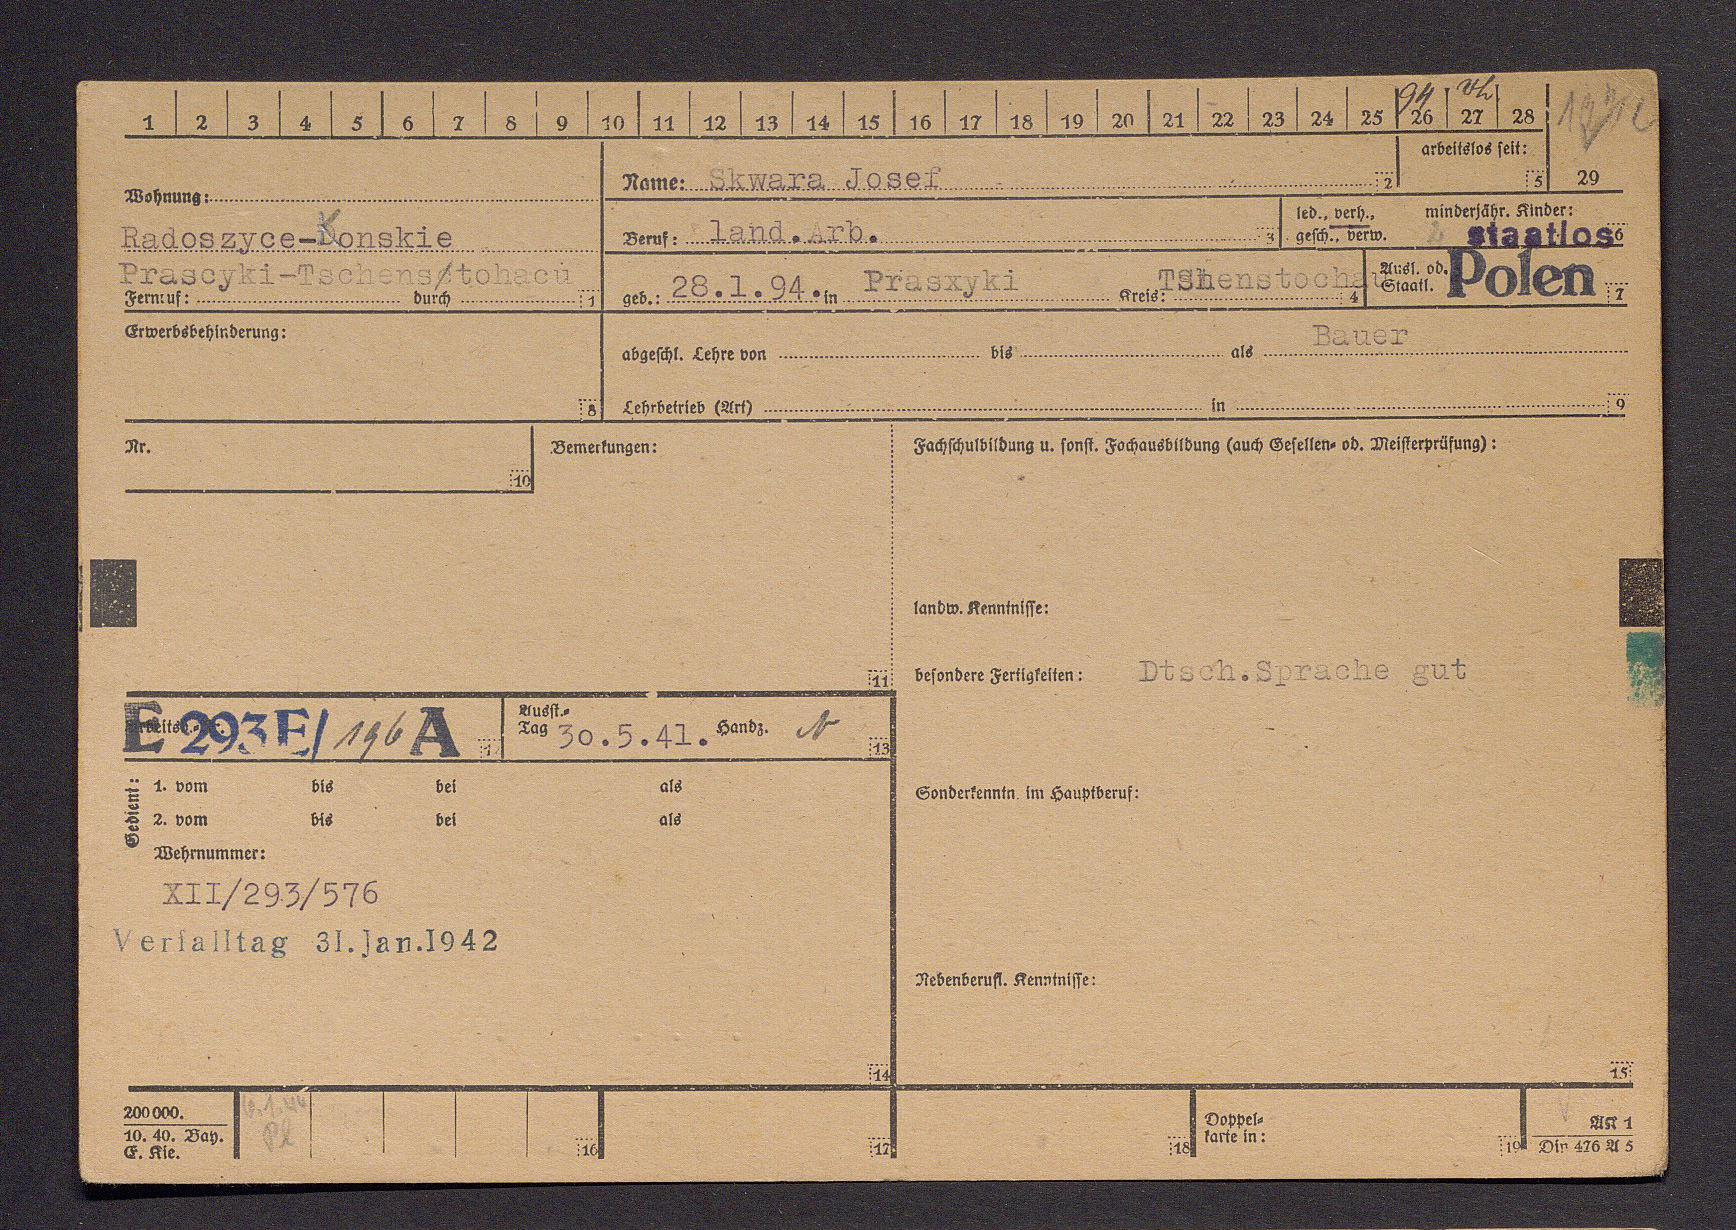 94 vh
1 2 3 4 5 6 7 8 9 10 11 12 13 14 15 16 17 18 19 20 21 22 23 24 25 26 27 28
arbeitslos seit:
5 29
Wohnung:
Name: Skwara Josef 2
Radoszyce-Konskie
Beruf: land.Arb. 3
led., verh., gesch., verw.
minderjähr. Kinder: 6
staatlos
Prascyki-Tschenstohacu
Fernruf: durch 1
geb.: 28.1.94. in Prasxyki Kreis: TShenstochau 4
Ausl. od. Staatl. Polen 7
Erwerbsbehinderung:
8
abgeschl. Lehre von bis als Bauer
Lehrbetrieb (Art) in 9
Nr.
10
Bemerkungen:
11
Fachschulbildung u. sonst. Fachausbildung (auch Gesellen- od. Meisterprüfung):
landw. Kenntnisse:
besondere Fertigkeiten: Dtsch.Sprache gut
E 293E/196 A
Ausst.-Tag 30.5.41. Handz. N 13
Gedient:
1. vom bis bei als
2. vom bis bei als
Wehrnummer:
XII/293/576
Verfalltag 31.Jan.1942
14
Sonderkenntn. im Hauptberuf:
Nebenberufl. Kenntnisse:
15
200000.
10. 40. Bay.
E. Kie.
16
17
18
Doppel-
karte in:
19
AK 1
Din 476 A 5